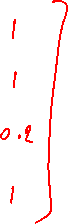 1
1
0.2
1